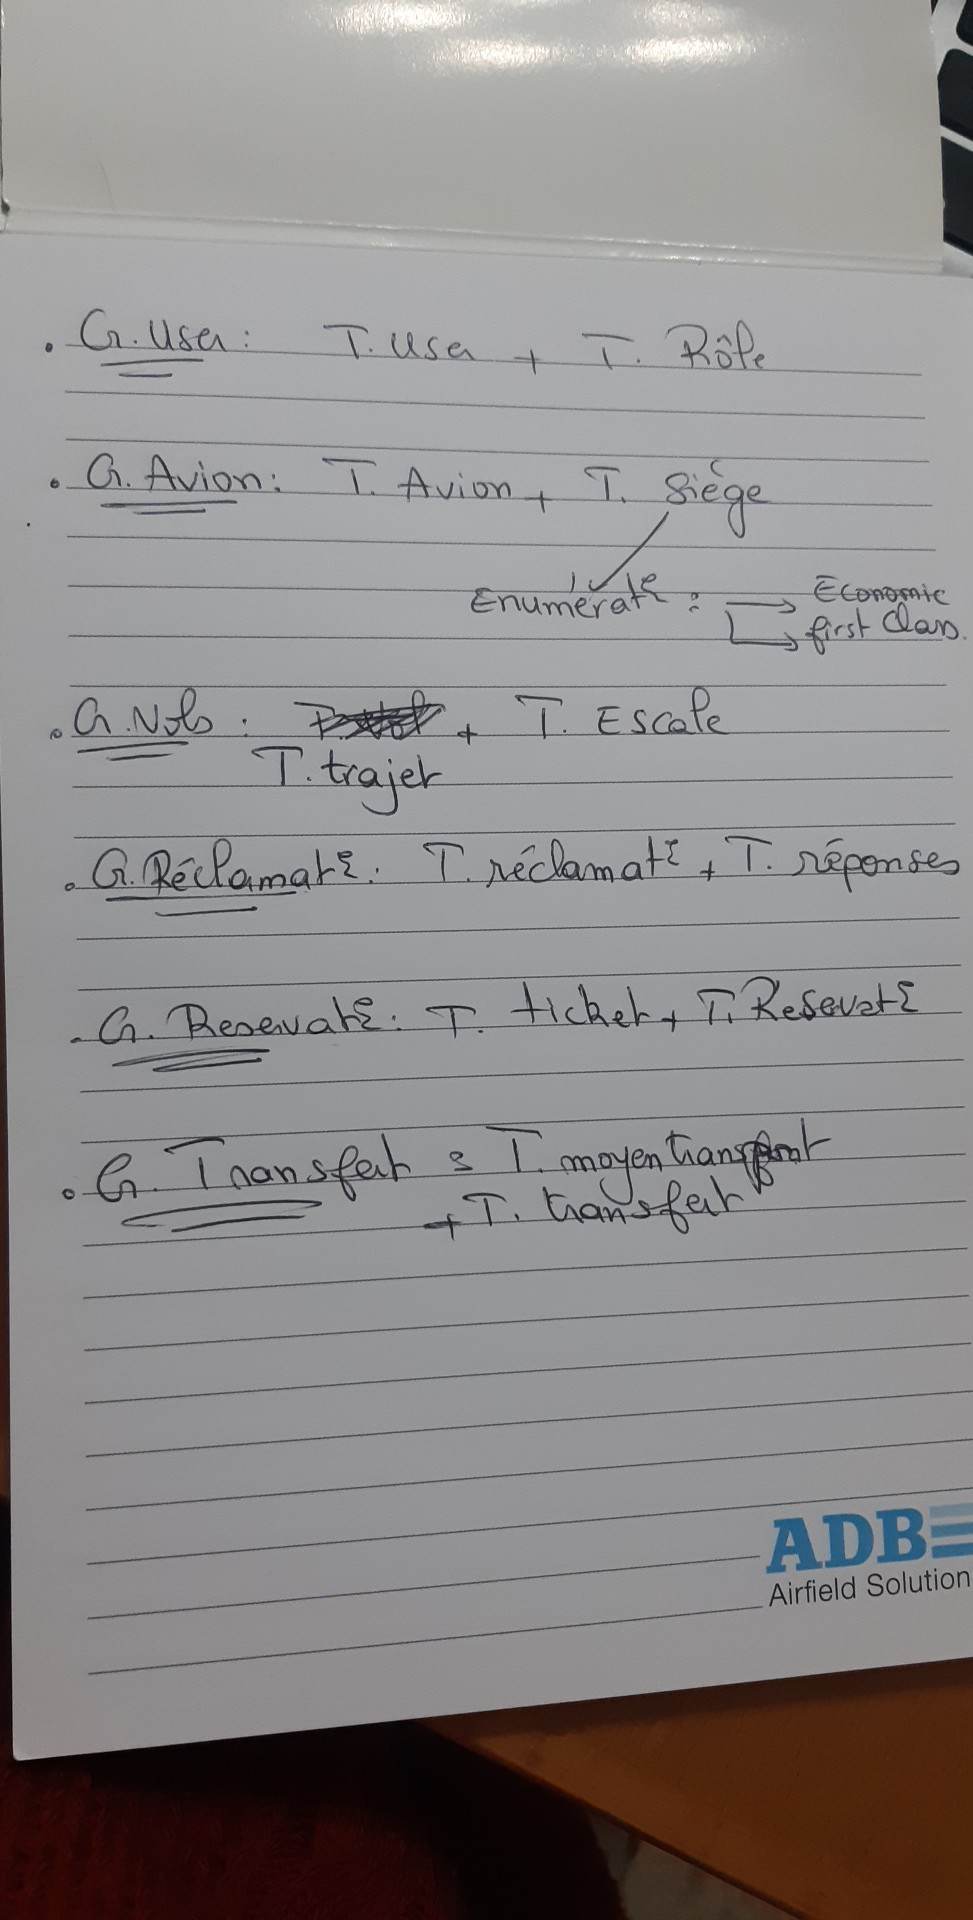 . G. User : T. User + T. Rôle
. G. Avion : T. Avion + T. Siége
Enumérat° : → Economic
→ first Class
. G. Vols : + T. Escale
T. trajet
. G. Réclamat° : T. réclamat° + T. réponses
. G. Reservat° : T. ticket + T. Reservat°
. G. Transfert : T. moyen transport
+ T. transfert
ADB
Airfield Solution